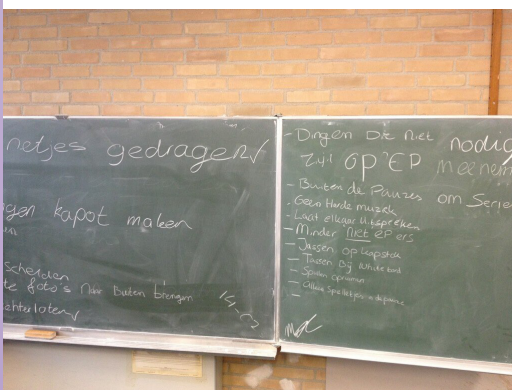 netjes gedragen
gen kapot maken
scheiden
te foto's naar buiten brengen
achterlaten
- Dingen Die niet nodig
zijn op 'EP meenem
- Buiten de Pauzes om Serie
- Geen Harde muziek
- Laat elkaar uitspreken
- Minder niet EP ers
- Jassen op kapstok
- Tassen Bij
- Spullen opruimen
- Alleen Spelletjes in de pauze
-